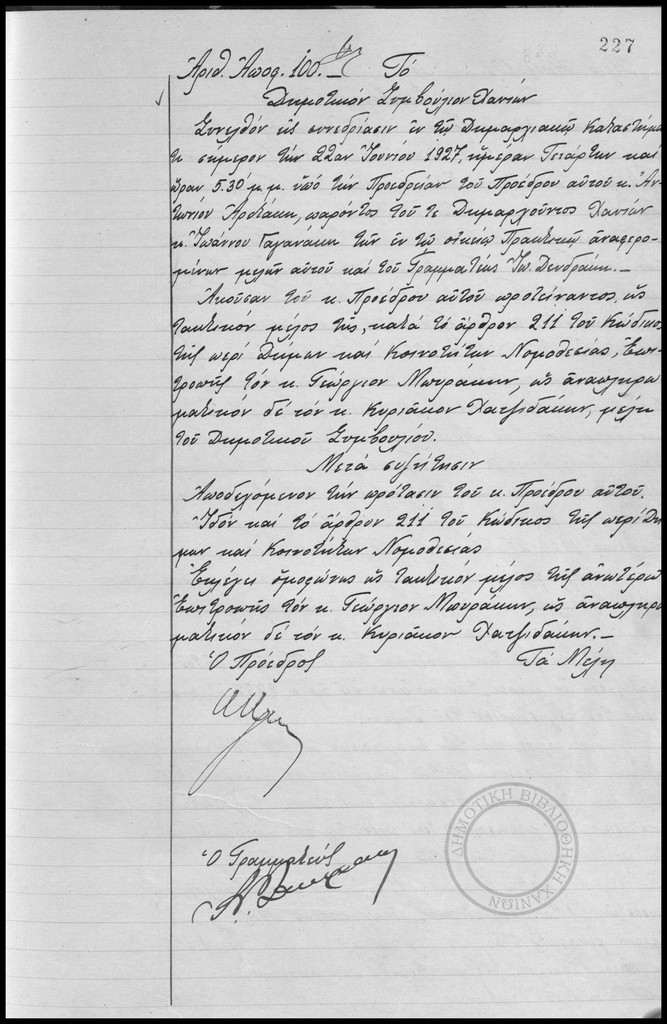 227
Ἀριθ. Ἀποφ. 100. Τό
Δημοτικόν Συμβούλιον Χανίων
Συνελθόν εἰς συνεδρίασιν ἐν τῷ Δημαρχιακῷ Καταστήμα
τι σήμερον τήν 22αν Ἰουνίου 1927, ἡμέραν Τετάρτην καί
ὥραν 5.30 μ.μ. ὑπό τήν Προεδρείαν τοῦ Προέδρου αὐτοῦ κ. Ἀν
τωνίου παρόντος τοῦ τε Δημαρχοῦντος Χανίων
κ. Ἰωάννου τῶν ἐν τῷ οἰκείῳ Πρακτικῷ ἀναφερο
μένων μελῶν αὐτοῦ καί τοῦ Γραμματέως Ἰω. Δενδράκη._
Ἀκοῦσαν τοῦ κ. Προέδρου αὐτοῦ προτείναντος, ὡς
τακτικόν μέλος τῆς, κατά τό ἄρθρον 211 τοῦ Κώδικος
τῆς περί Δήμων καί Κοινοτήτων Νομοθεσίας, Ἐπι
τροπῆς τόν κ. Γεώργιον Μπυράκην, ὡς ἀναπληρω
ματικόν δέ τόν κ. Κυριάκον Χατζιδάκην, μέλη
τοῦ Δημοτικοῦ Συμβουλίου.
Μετά συζήτησιν
Ἀποδεχόμενον τήν πρότασιν τοῦ κ. Προέδρου αὐτοῦ.
Ἰδόν καί τό ἄρθρον 211 τοῦ Κώδικος τῆς περί Δή
μων καί Κοινοτήτων Νομοθεσίας
Ἐκλέγει ὁμοφώνως ὡς τακτικόν μέλος τῆς ἀνωτέρω
Ἐπιτροπῆς τόν κ. Γεώργιον Μπυράκην, ὡς ἀναπληρω
ματικόν δέ τόν κ. Κυριάκον Χατζιδάκην._
Ὁ Πρόεδρος Τά Μέλη
Ὁ Γραμματεύς
ΔΗΜΟΤΙΚΗ ΒΙΒΛΙΟΘΗΚΗ ΧΑΝΙΩΝ